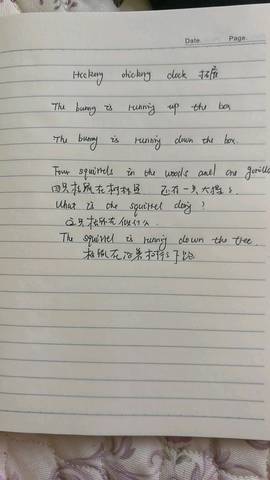 Date. Page.
Hickory dickory dock 拓展
The bunny is running up the box
The bunny is running down the box.
Four squirrels in the woods and one gorilla
四只松鼠在树林里 还有一只大猩猩
What is the squirrel doing?
这只松鼠在做什么
The squirrel is runing down the tree.
松鼠在沿着树往下跑